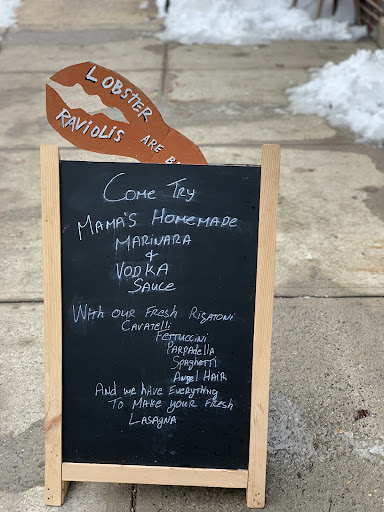 LOBSTER
RAVIOLIS ARE B
COME TRY
MAMA'S HOMEMADE
MARINARA
&
VODKA
SAUCE
WITH OUR FRESH RIGATONI
CAVATELLI
FETTUCCINI
PARPADELLA
SPAGHETTI
ANGEL HAIR
AND WE HAVE EVERYTHING
TO MAKE YOUR FRESH
LASAGNA